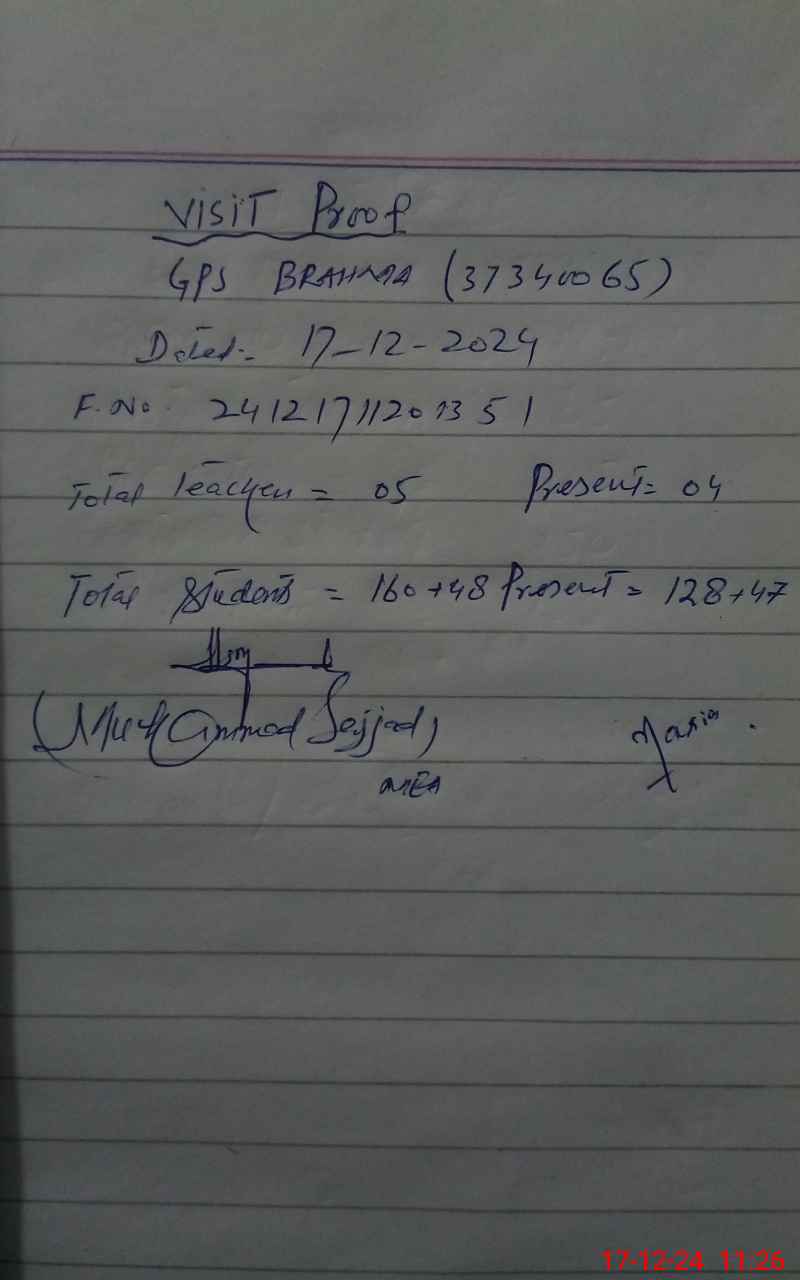 VISIT Proof
GPS BRAHMA (37340065)
Dated:- 17-12-2024
F. No. 24121711201351
Total Teacher = 05 Present = 04
Total Students = 160+48 Present = 128+47
(Muhammad Sajjad)
MEA
17-12-24 11:26